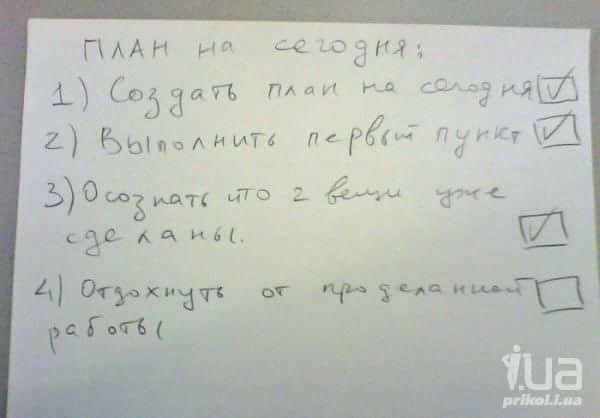 ПЛАН на сегодня:
1) Создать план на сегодня
2) Выполнить первый пункт
3) Осознать что 2 вещи уже
сделаны.
4) Отдохнуть от проделанной
работы
i.UA
prikol.i.ua